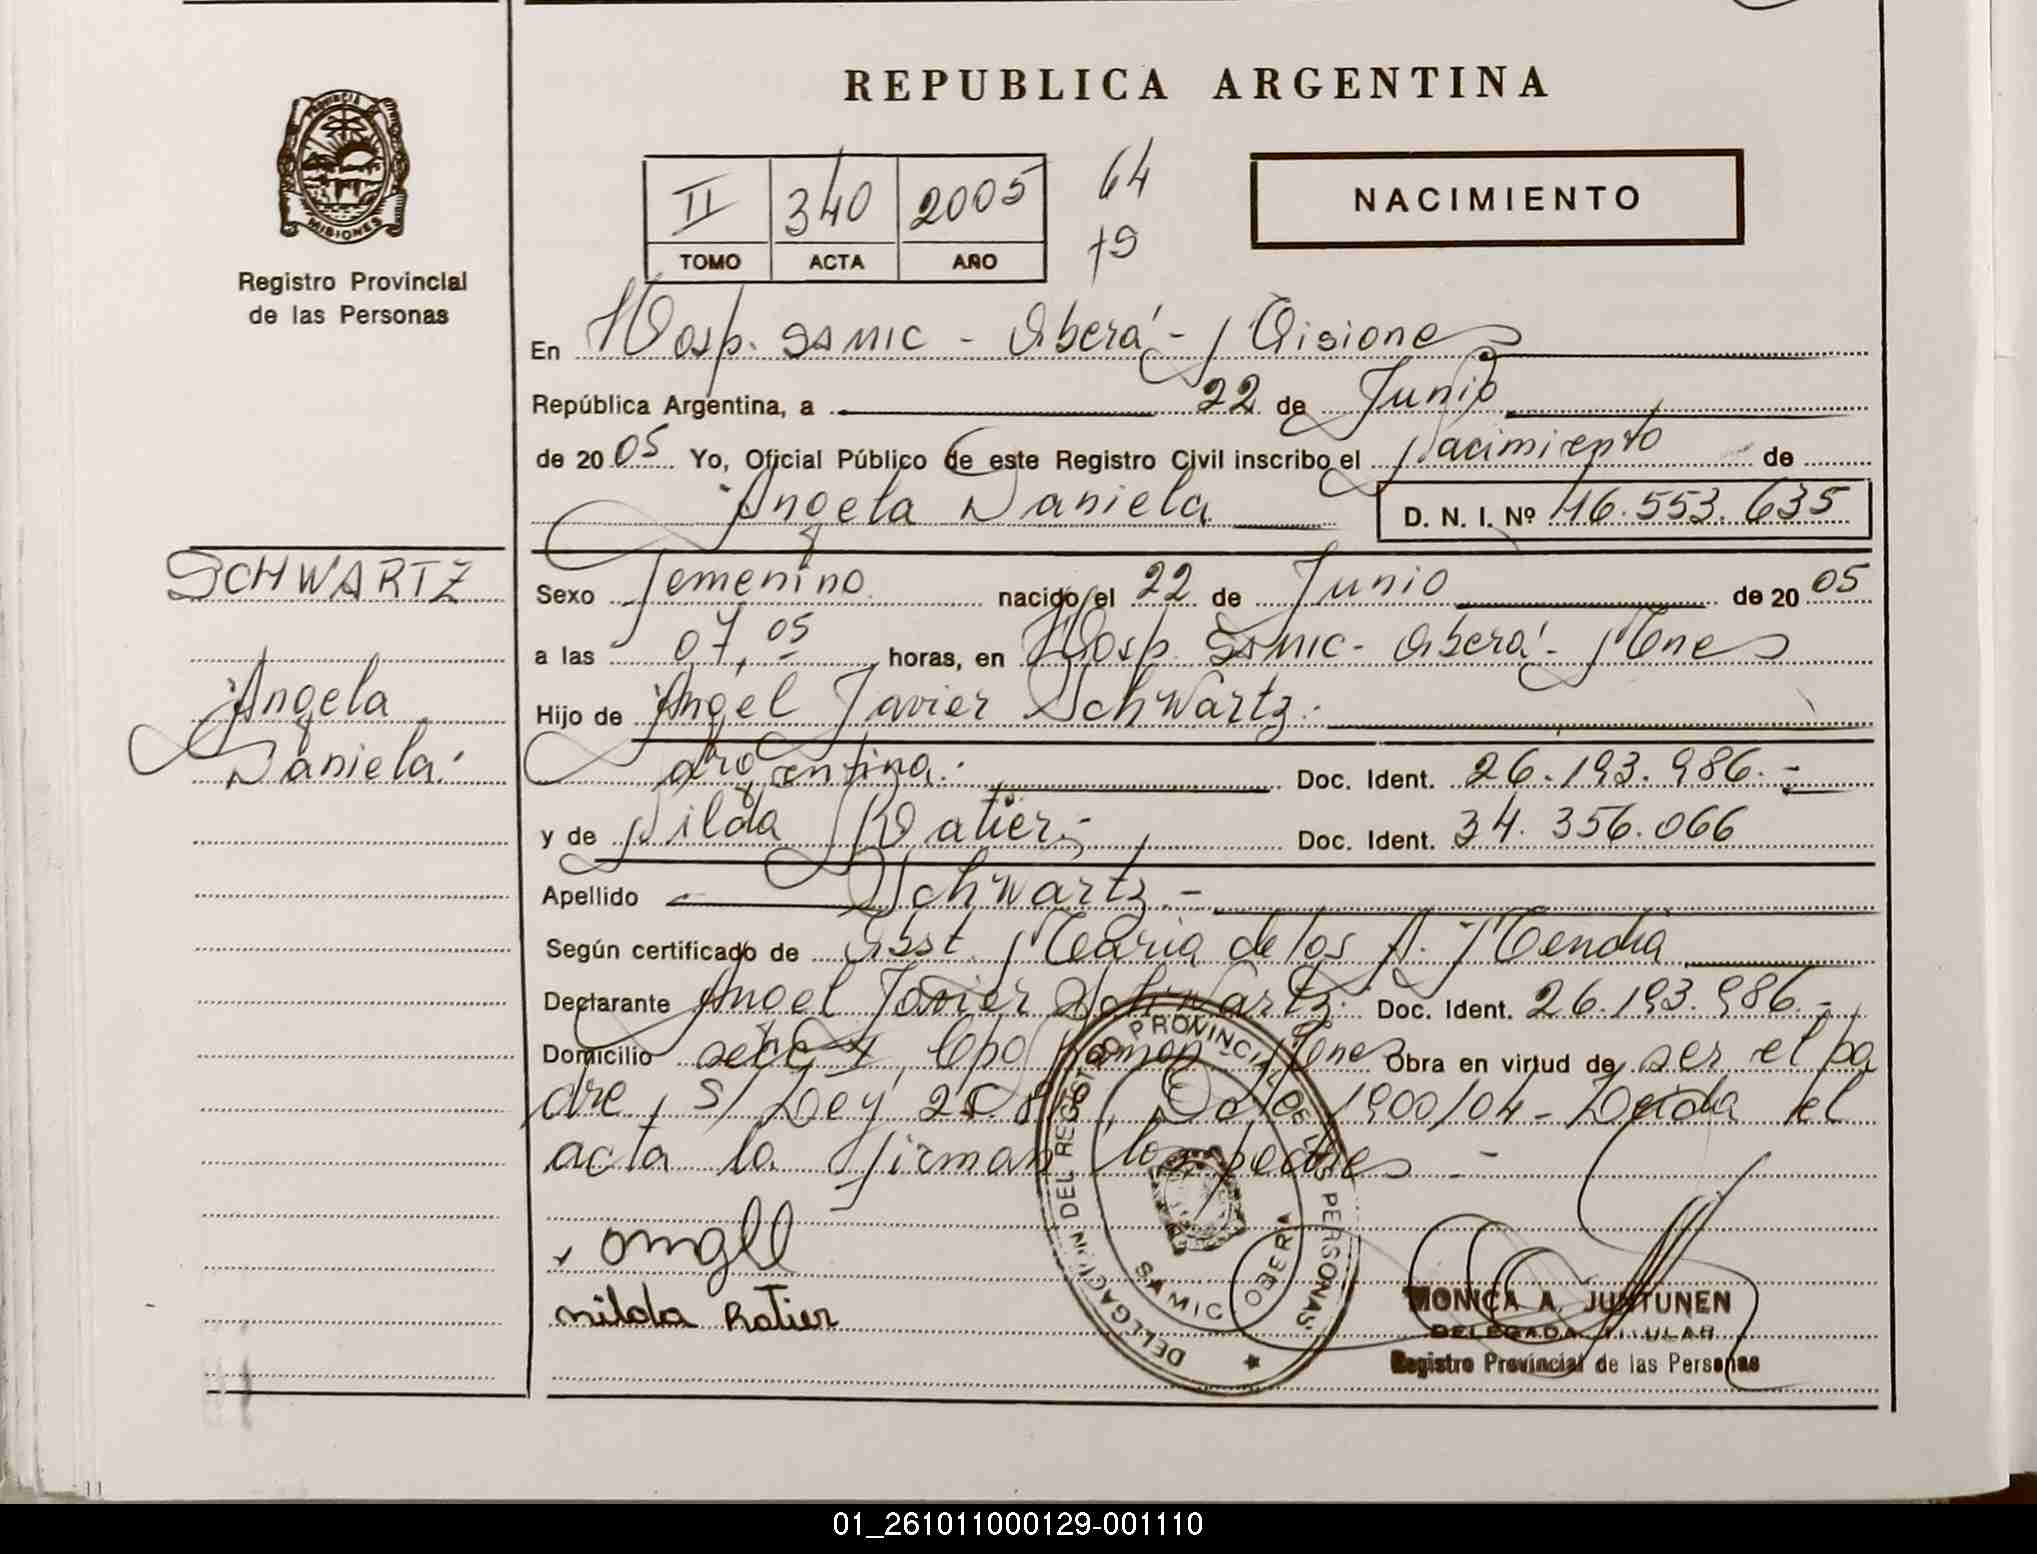 REPUBLICA ARGENTINA
PROVINCIA
MISIONES
Registro Provincial
de las Personas
II 340 2005
TOMO ACTA AÑO
64
79
NACIMIENTO
En Hosp. SAMIC - Oberá - Misiones
República Argentina, a 22 de Junio
de 20 05 Yo, Oficial Público de este Registro Civil inscribo el Nacimiento de
Angela Daniela D. N. I. Nº 46.553.635
SCHWARTZ
Angela
Daniela.
Sexo Femenino nacido el 22 de Junio de 20 05
a las 07,05 horas, en Hosp. SAMIC - Oberá - Mnes
Hijo de Angel Javier Schwartz.
argentina. Doc. Ident. 26.193.986.-
y de Nilda Ratier.- Doc. Ident. 34.356.066
Apellido Schwartz.-
Según certificado de Obst. Maria de los A. Mendia
Declarante Angel Javier Schwartz. Doc. Ident. 26.193.986.-
Domicilio Ramon - Mnes Obra en virtud de ser el pa
dre, s/ Ley Dcto 1900/04 - Leida el
acta la firman los padres -
angel
nilda Ratier
DELEGACION DEL REGISTRO PROVINCIAL DE LAS PERSONAS.
SAMIC OBERA
MONICA A. JUNTUNEN
DELEGADA TITULAR
Registro Provincial de las Personas
01_261011000129-001110